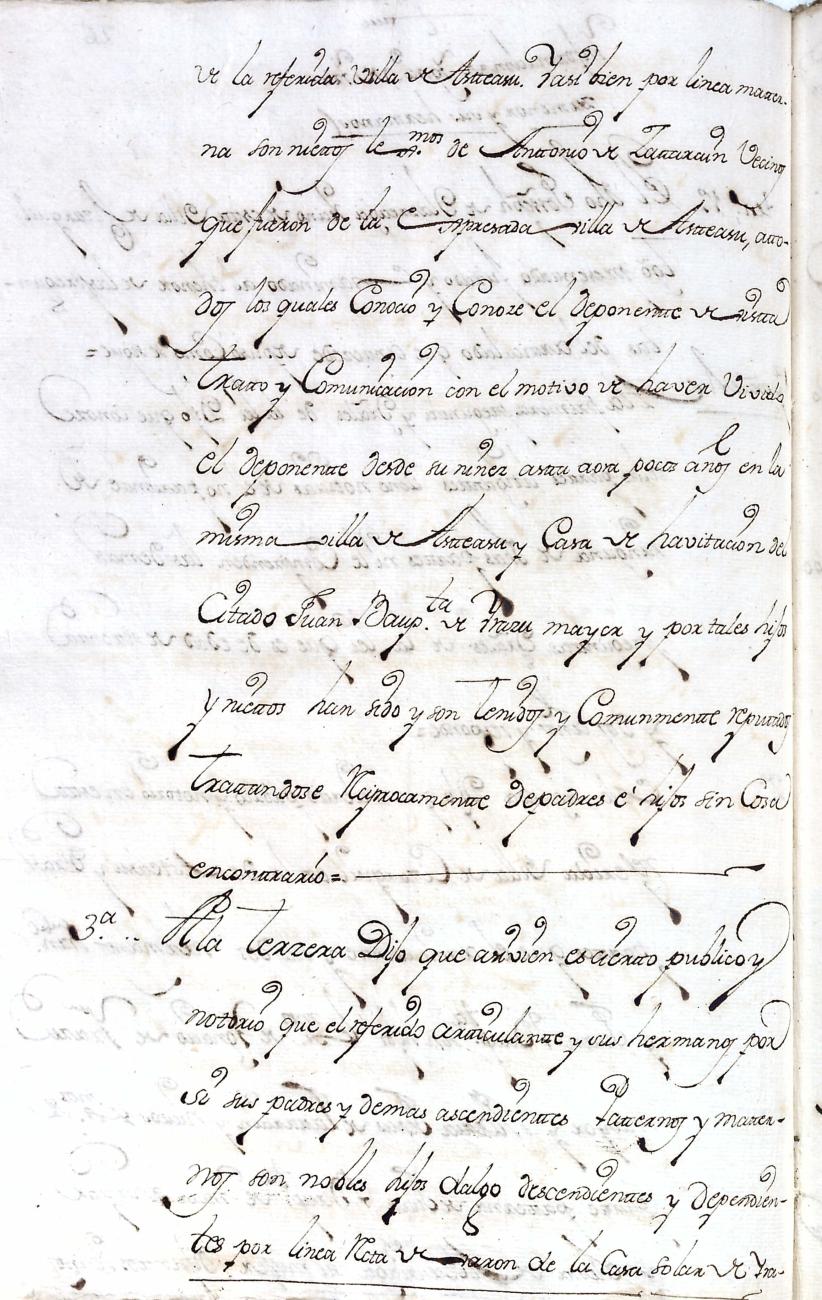 de la referida Villa de Asteasu. Y asi bien por linea mater-
na son nietos le^mos de Anttonio de Zattarain Vecinos
que fueron de la, Expresada villa de Asteasu, atto-
dos los quales Conocio y Conoze el deponentte de vistta
tratto y Comunicacion con el motivo de haver Vivido
el deponentte desde su niñez asta aora pocos años en la
misma villa de Asteasu y Casa de havitacion del
Citado Juan Baup.^ta de Yrazu mayor y por tales hijos
y niettos han sido y son tenidos y Comunmentte reputtados
trattandose reciprocamentte de padres é hijos sin Cosa
en contrario =
3.^a .. A la terzera Dijo que asi vien es cierto publico y
notorio que el referido articulantte y sus hermanos por
si sus padres y demas ascendienttes Patternos y matter-
nos son nobles hijos dalgo descendienttes y dependien-
tes por linea recta de varon de la Casa solar de Yra-